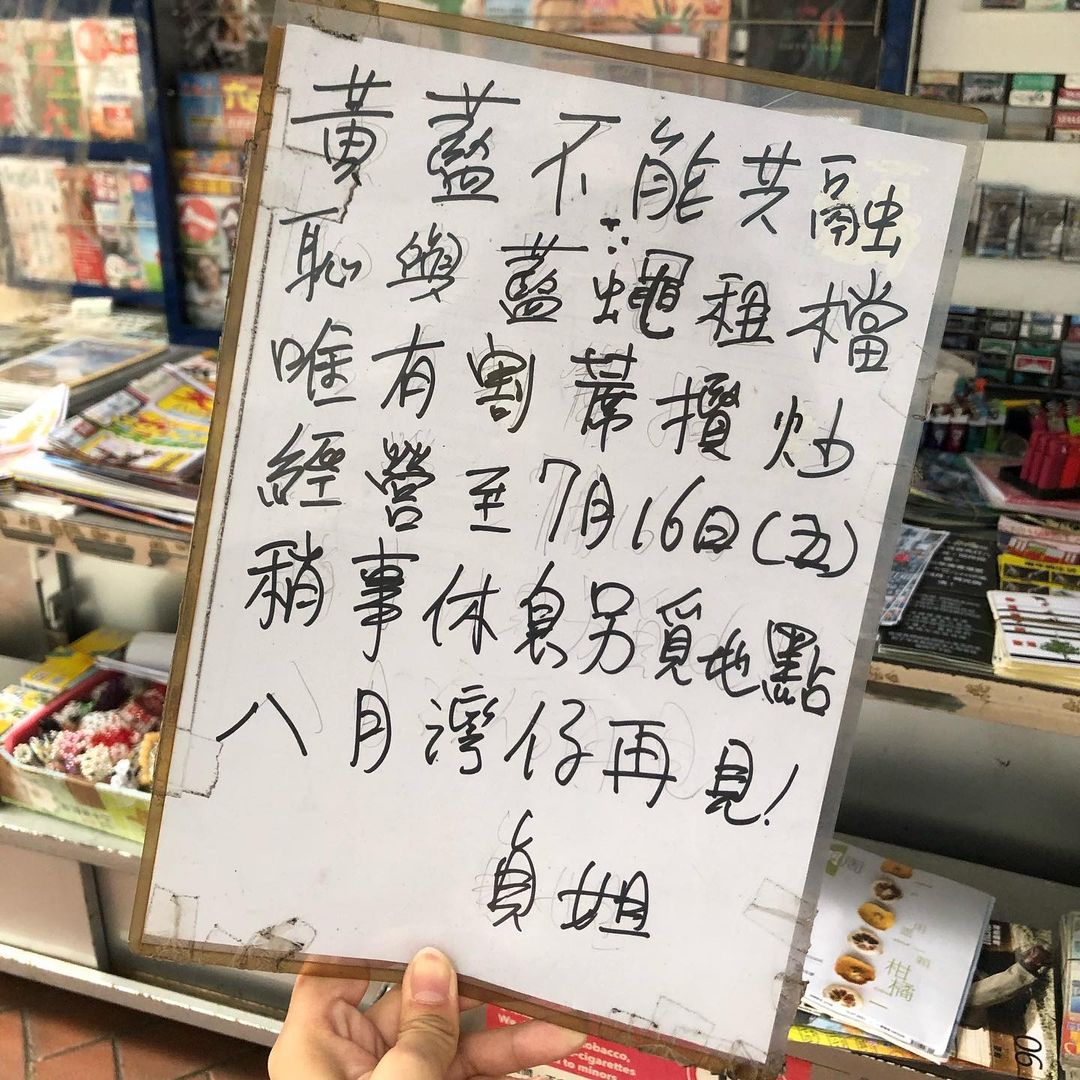 黃藍不能共融
恥與藍蠅租檔
唯有割蓆攬炒
經營至7月16日(五)
稍事休息另覓地點
八月灣仔再見!
貞姐
六
柑橘
tobacco,
e-cigarettes
to minors
06